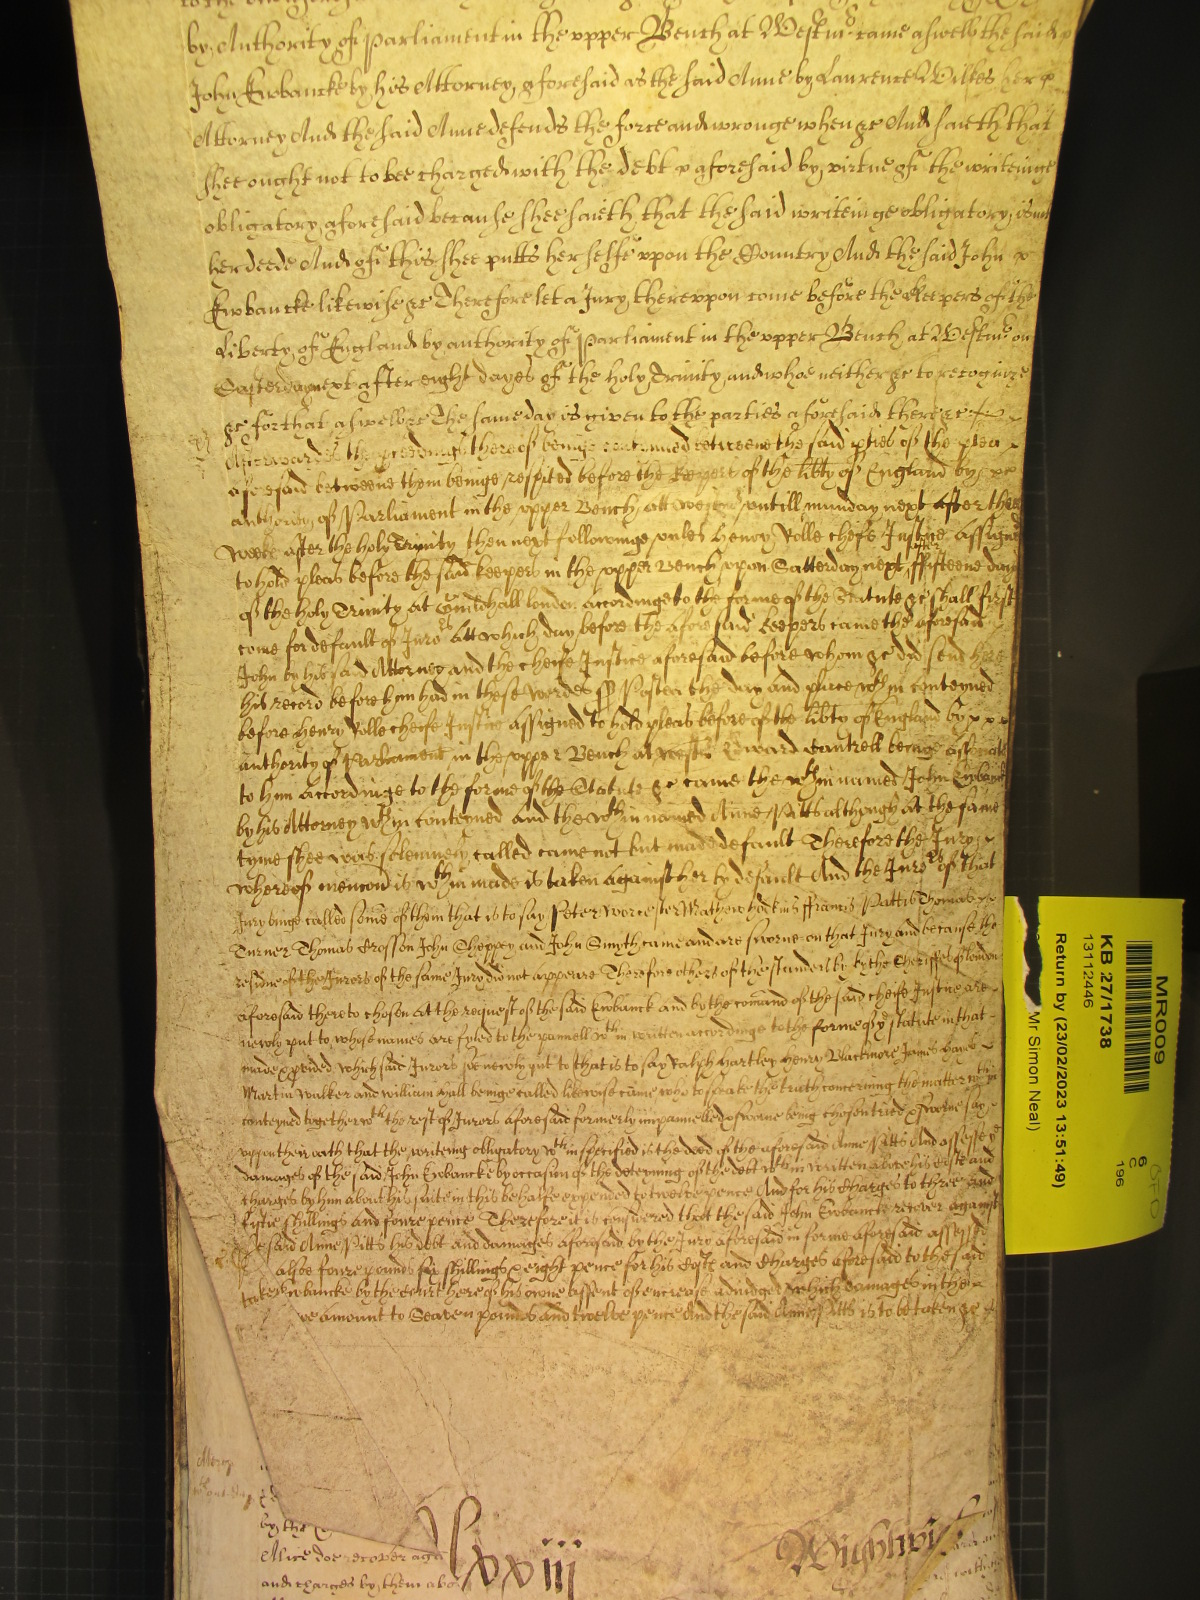 by Authority of Parliament in the upper Bench at Westm̃ came aswell the said
John Ewbancke by his Attorney aforesaid as the said Anne by Laurence Wilkes her
Attorney And the said Anne defends the force and wronge when &c And saieth that
shee ought not to bee charged with the debt aforesaid by virtue of the writeinge
obligatory aforesaid because shee saieth that the said writeinge obligatory is not
her deede And of this shee putts her selfe uppon the Country And the said John
Ewbancke likewise &c Therefore let a Jury thereuppon come before the Keepers of the
Liberty of England by authority of Parliament in the upper Bench at Westm̃ on
next after eight dayes of the holy Trinity and whoe neither &c to recognize
&c for that aswell &c The same day is given to the parties aforesaid there &c
Afterwardes the proceedings thereof beinge continued betweene the said pties of the plea
aforesaid betweene them beinge respited before the Keepers of the libty of England by
authority of Parliament in the upper Bench att Westm̃ untill munday next after three
weeks after the holy Trinity then next followinge unles Henry Rolle cheife Justice Assigned
to hold pleas before the said keepers in the upper Bench upon Satterday next after ffifteene dayes
of the holy Trinity at Guildhall london accordinge to the forme of the Statute &c shall first
come for default of Juro:rs Att which day before the aforesaid keepers came the aforesaid
John by his said Attorney and the cheife Justice aforesaid before whom &c did send here
his record before him had in these wordes Postea the day and place w:th:in conteyned
before Henry Rolle cheife Justice assigned to hold pleas before of the libty of England by
authority of Parliament in the upper Bench at westm̃ Edward Cantrell beinge associate
to him accordinge to the forme of the Statute &c came the w:th:in named John Ewbanck
by his Attorney w:th:in conteyned and the w:th:in named Anne Pitts although at the same
tyme shee was solemnely called came not but made default Therefore the Jury
whereof mencon is w:th:in made is taken against her by default And the Juro:rs of that
Jury beinge called some of them that is to say Peter Worcester Mathew Hockins ffrancis Pattis Thomas
Turner Thomas Crosson John Sheppey and John Smyth came and are sworne on that Jury and because the
residue of the Jurors of the same Jury did not appeare Therefore others of the standers by by the Sheriffes of london
aforesaid thereto chosen at the request of the said Ewbanck and by the comand of the said cheife Justice are
newly put to whose names are fyled to the pannell w:th:in written accordinge to the forme of y:e statute in that
made & pvided which said Jurors soe newly put to that is to say Ralph Hartley Henry Blackmore James
Martin Walker and william Hall beinge called likewise came who to speake the truth concerning the matter w:th:in
conteyned together w:th the rest of Jurors aforesaid formerly impannelled & sworne being chosen tried & sworne say
uppon their oath that the writeing obligatory w:th:in specified is the deed of the aforesaid Anne Pitts And assesse y:e
damages of the said John Ewbancke by occasion of the deteyning of the debt w:th:in written above his coste and
charges by him about his suite in this behalfe expended to twelve pence And for his Charges to three and
fiftie shillings and foure pence Therefore it is considered that the said John Ewbancke recover against
said Anne Pitts his debt and damages aforesaid by the Juro:rs aforesaid in forme aforesaid assessed
alsoe foure pounds six shillings & eight pence for his Costs and Charges aforesaid to the said
Ewbancke by the Court here of his owne assent of encrease adiudged which damages in the
amount to Seaven pounds and twelve pence And the said Anne Pitts is to be taken &c
by the
Alice doe recover aga
and charges by them abo
lxxiii
Wightwick
MR009
KB 27/1738
13112446
6
C
196
Return by (23/02/2023 13:51:49)
Mr Simon Neal)